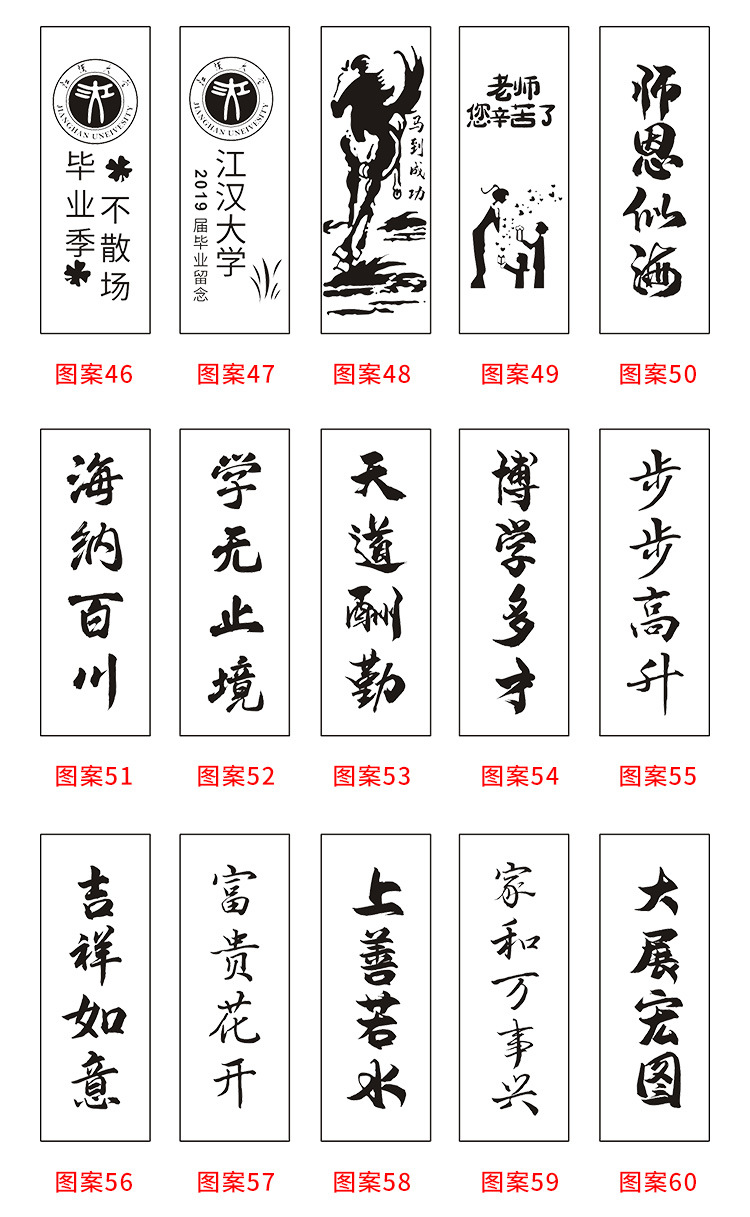 江漢大学
JIANGHAN UNEIVESITY
毕业季
不散场
图案46
江漢大学
JIANGHAN UNEIVESITY
江汉大学
2019届毕业留念
图案47
马到成功
图案48
老师
您辛苦了
图案49
师恩似海
图案50
海纳百川
图案51
学无止境
图案52
天道酬勤
图案53
博学多才
图案54
步步高升
图案55
吉祥如意
图案56
富贵花开
图案57
上善若水
图案58
家和万事兴
图案59
大展宏图
图案60